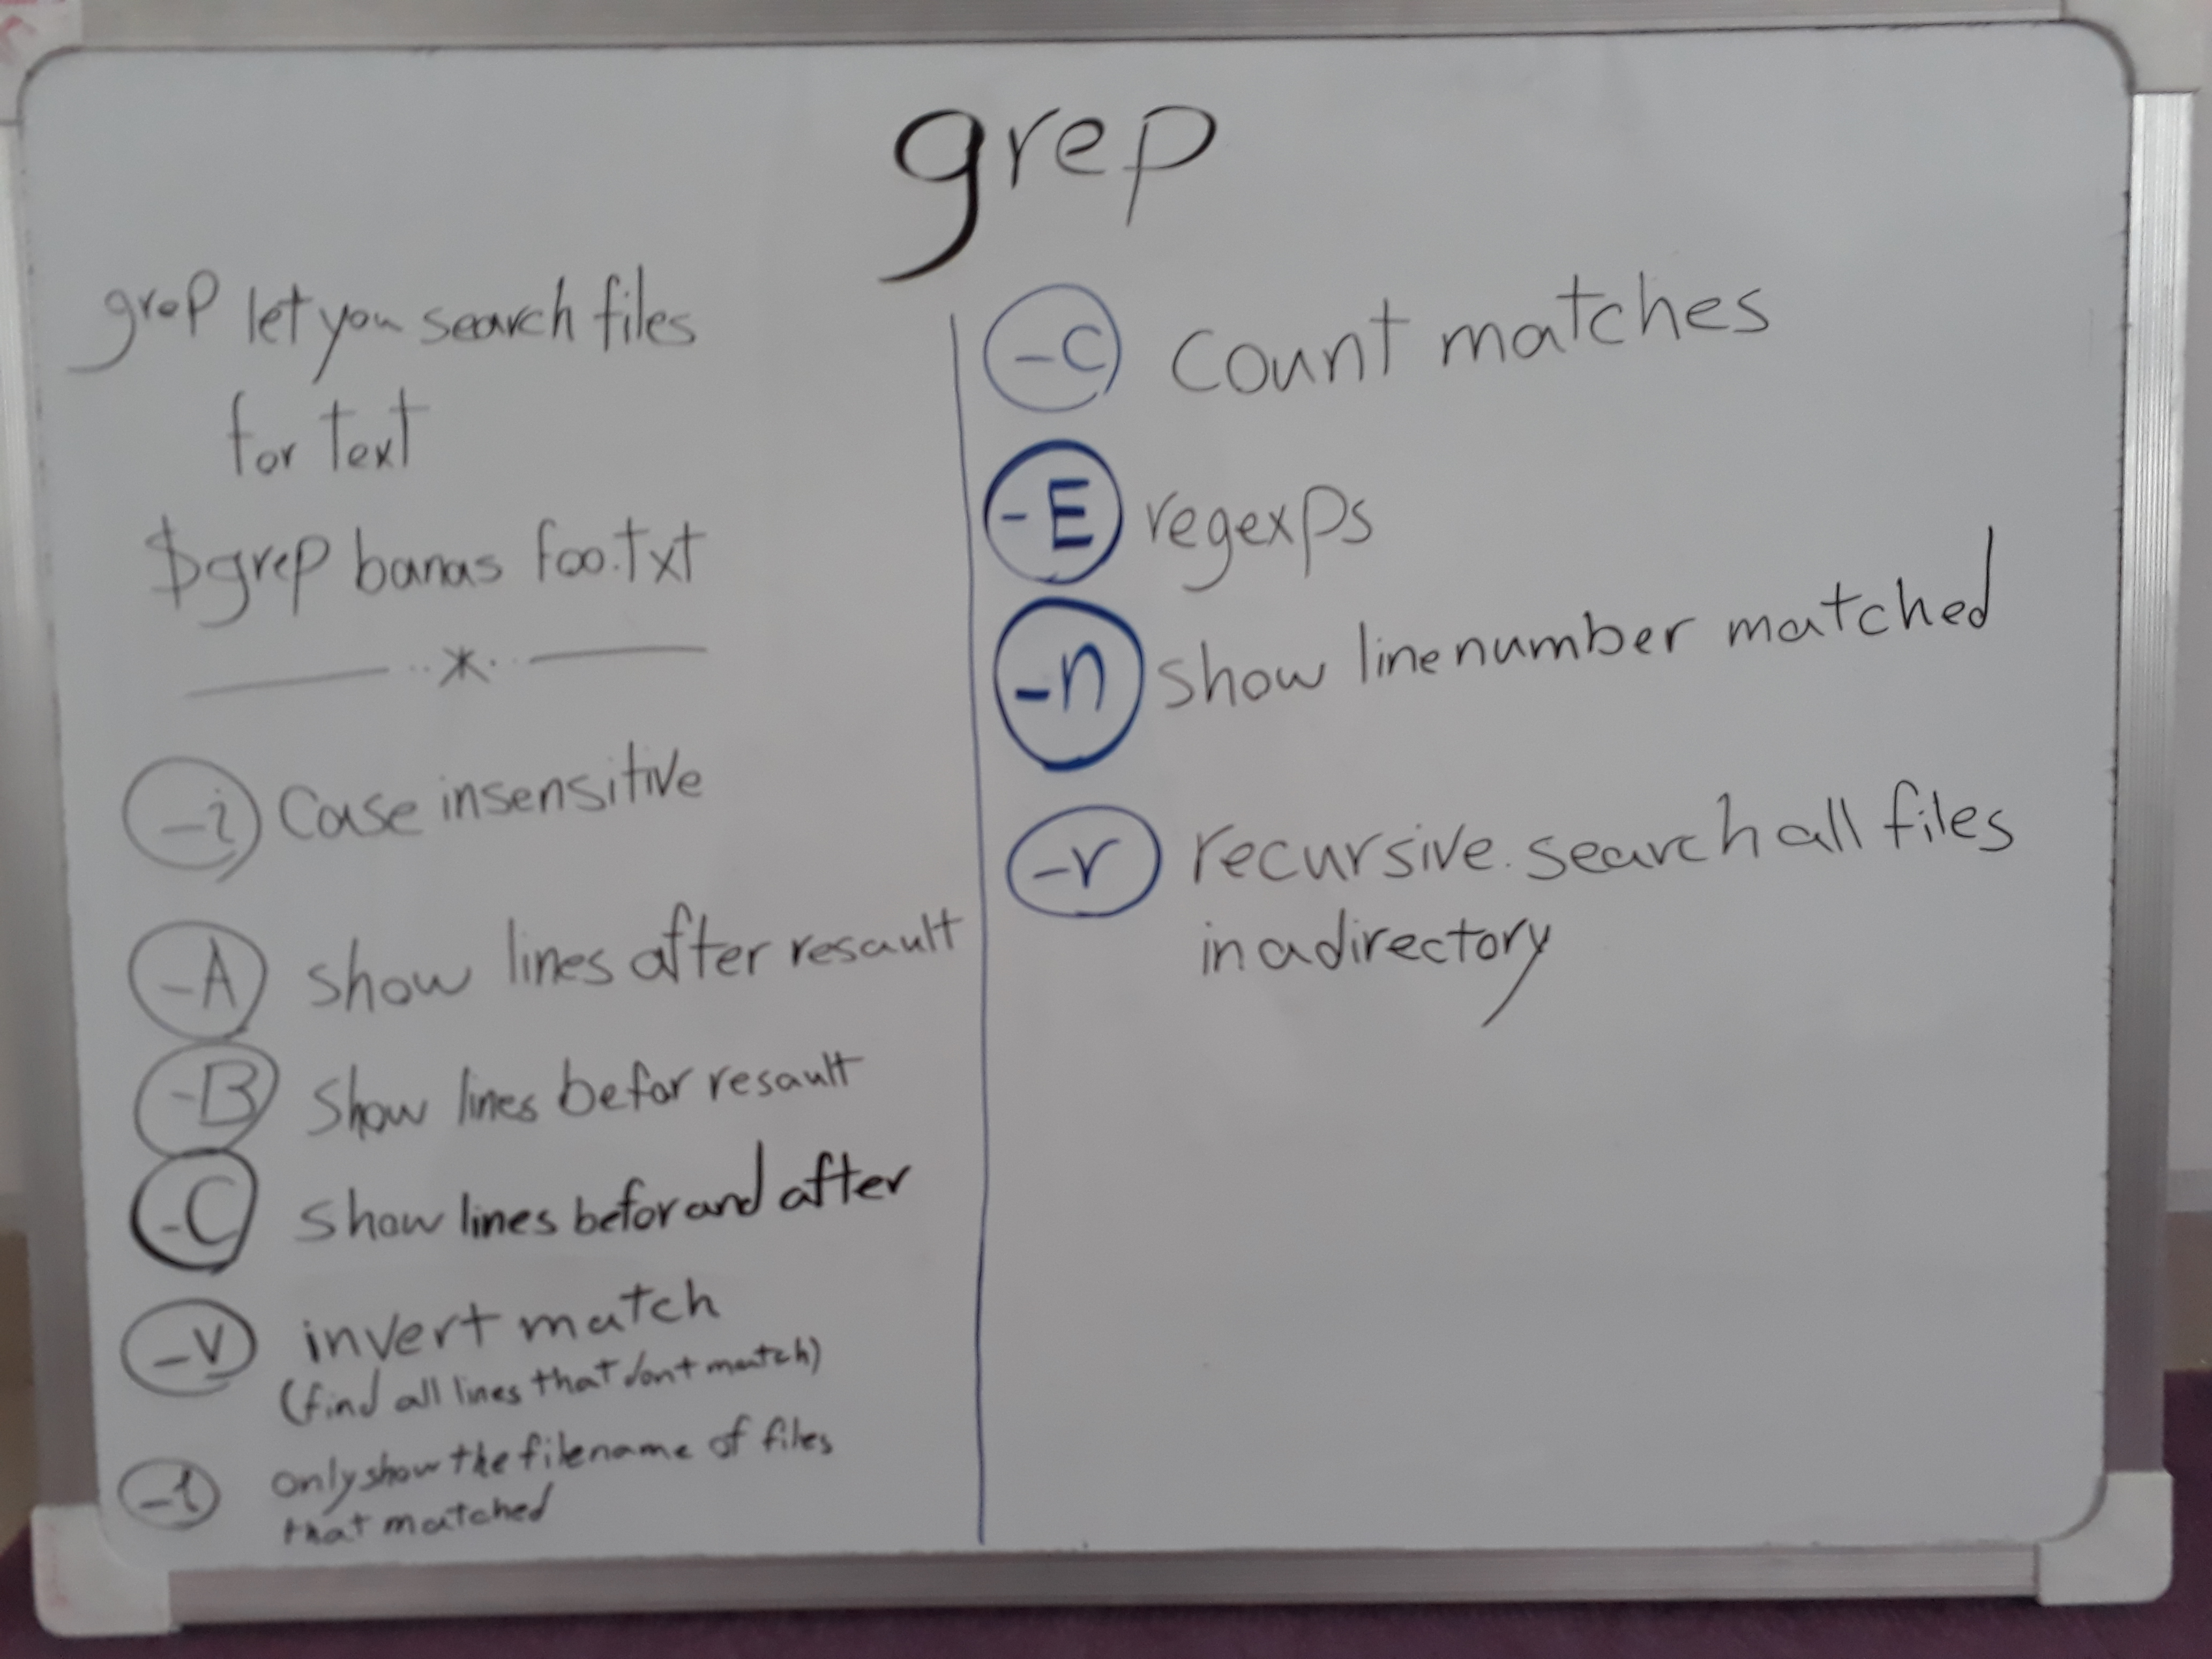 grep
grep let you search files
for text
$grep banas foo.txt
-i Case insensitive
-A show lines after resault
-B show lines befor resault
-C show lines befor and after
-v invert match
(find all lines that dont match)
-l only show the filename of files
that matched
-c count matches
-E regexps
-n show line number matched
-r recursive. search all files
in a directory